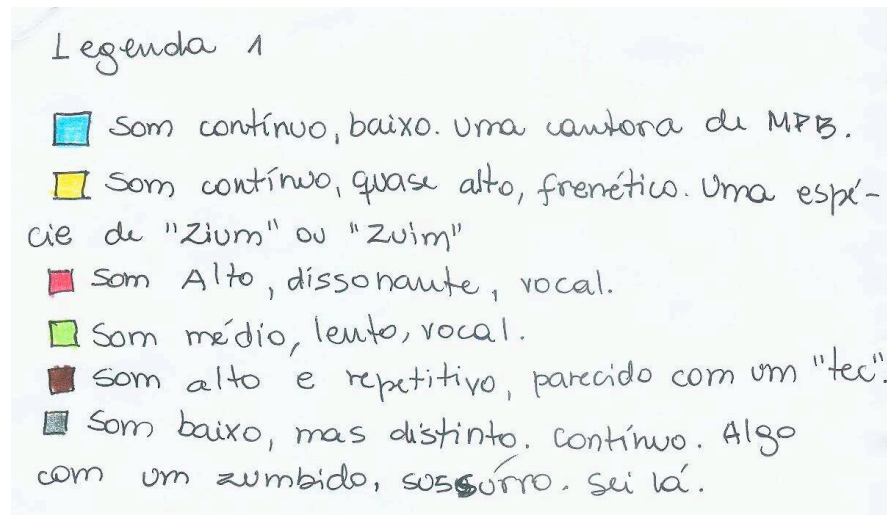 Legenda 1
Som contínuo, baixo. Uma cantora de MPB.
Som contínuo, quase alto, frenético. Uma espé-
cie de "Zium" ou "Zuim"
Som Alto, dissonante, vocal.
Som médio, lento, vocal.
Som alto e repetitivo, parecido com um "tec".
Som baixo, mas distinto. Contínuo. Algo
com um zumbido, sussúrro. Sei lá.